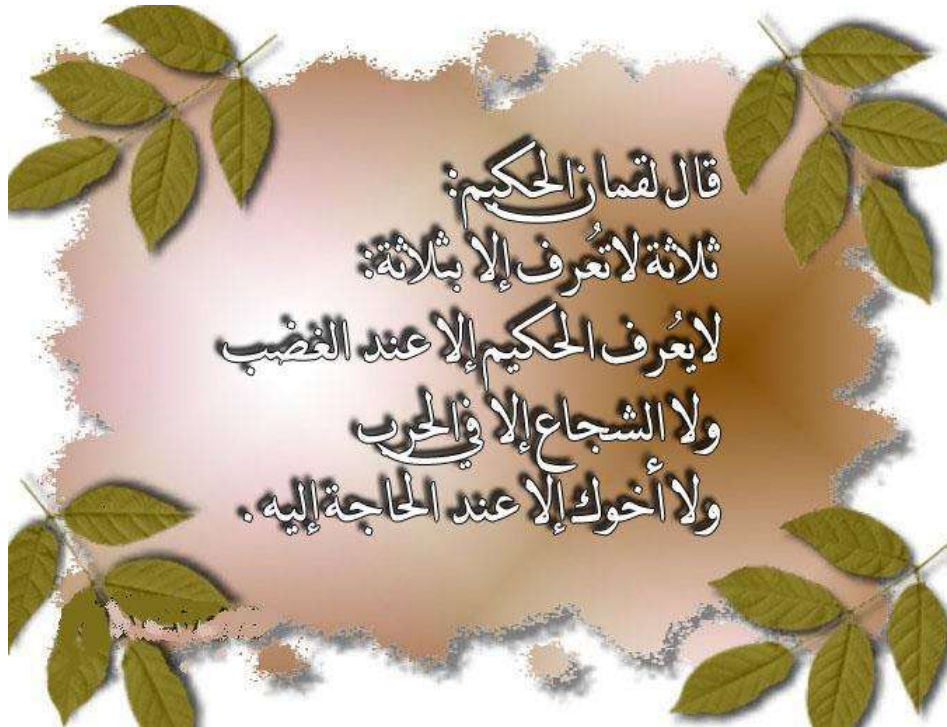 قال لقمان الحكيم:
ثلاثة لا تُعرف إلا بثلاثة:
لا يُعرف الحكيم إلا عند الغضب
ولا الشجاع إلا في الحرب
ولا أخوك إلا عند الحاجة إليه .